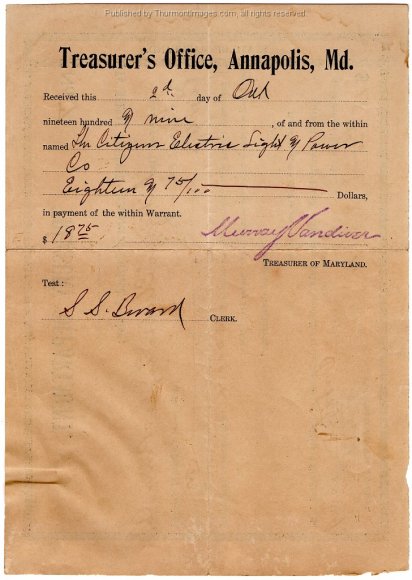 Published by Thurmontimages.com, all rights reserved.
Treasurer's Office, Annapolis, Md.
Received this 2d. day of Oct
nineteen hundred & nine, of and from the within
named The Citizens Electric Light & Power
Co
Eighteen & 75/100 Dollars,
in payment of the within Warrant.
$ 18 75 Murray Vandiver
Treasurer of Maryland.
Test:
S. S. Clerk.